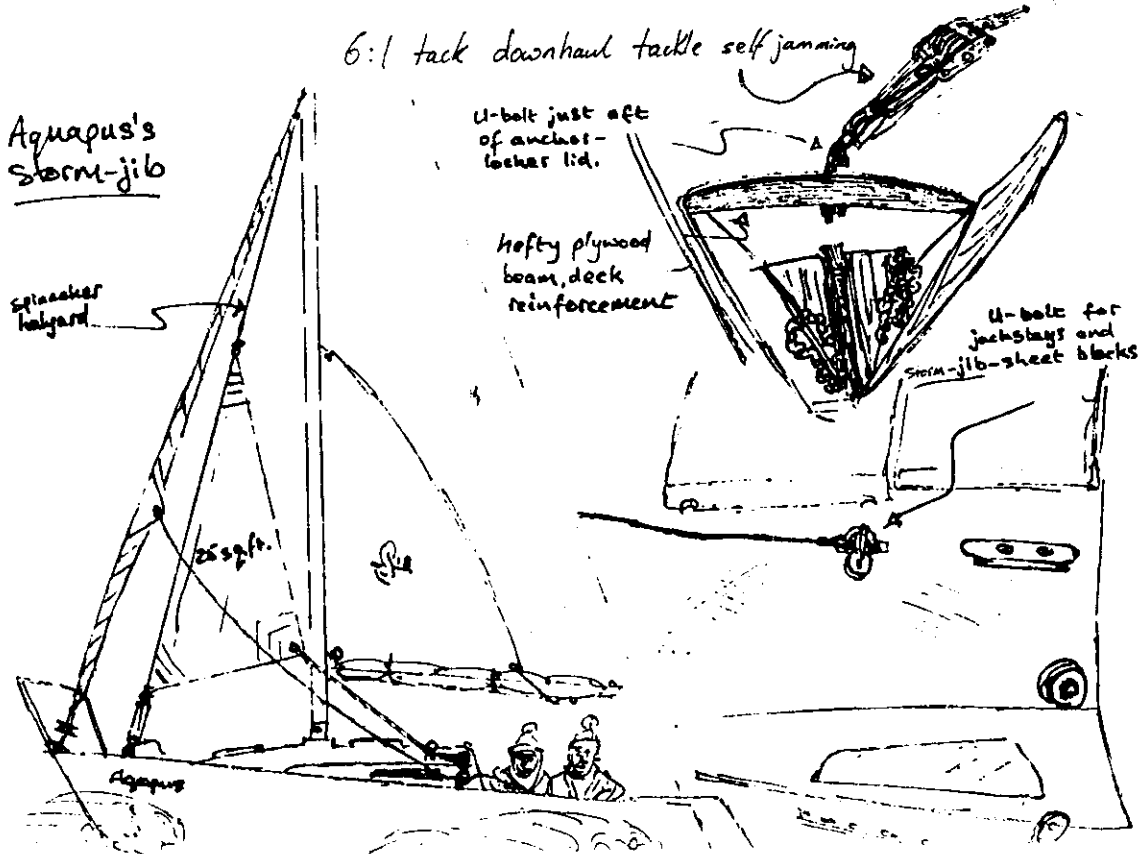 6:1 tack downhaul tackle self jamming
Aquapus's
Storm-jib
U-bolt just aft
of anchor-
locker lid.
hefty plywood
beam, deck
reinforcement
U-bolt for
jackstays and
storm-jib-sheet blocks
spinnaker
halyard
25 sq.ft.
Aquapus